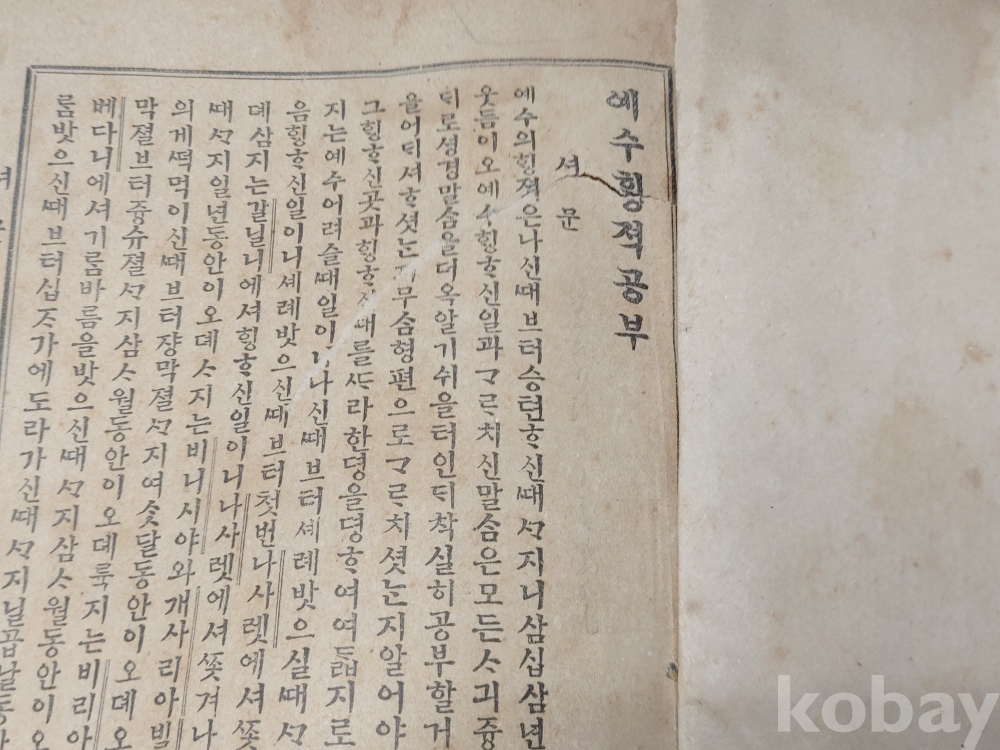 예수ᄒᆡᆼ적공부
셔문
예수의ᄒᆡᆼ젹은나신때브터승텬ᄒᆞ신때ᄭᆞ지니삼십삼년
웃듬이오예수ᄒᆡᆼᄒᆞ신일과ᄀᆞᄅᆞ치신말ᄉᆞᆷ은모든ᄉᆞ긔즁
ᄃᆡ로셩경말ᄉᆞᆷ을더옥알기쉬을터인ᄃᆡ착실히공부할거
을어ᄃᆡ셔ᄒᆞ셧ᄂᆞᆫ지무ᄉᆞᆷ형편으로ᄀᆞᄅᆞ치셧ᄂᆞᆫ지알어야
그ᄒᆡᆼᄒᆞ신곳과ᄒᆡᆼᄒᆞ신때를ᄯᆞ라한뎡을뎡ᄒᆞ여여듧지로
지는예수어려슬때일이니나신때브터셰례밧으실때ᄭᆞ
음ᄒᆡᆼᄒᆞ신일이니셰례밧으신때브터첫번나사렛에셔ᄶᅩᆺ
뎨삼지는갈닐니에셔ᄒᆡᆼᄒᆞ신일이니나사렛에셔ᄶᅩᆺ겨나
때ᄭᆞ지일년동안이오뎨ᄉᆞ지는비니시야와개사리아빌
의게떡먹이신때브터쟝막졀ᄭᆞ지여ᄉᆞᆺ달동안이오뎨오
막졀브터즁슈졀ᄭᆞ지삼ᄉᆞ월동안이오뎨륙지는비리아
베다니에셔기름바름을밧으신때ᄭᆞ지삼ᄉᆞ월동안이오
름밧으신때브터십ᄌᆞ가에도라가신때ᄭᆞ지닐곱날동
kobay